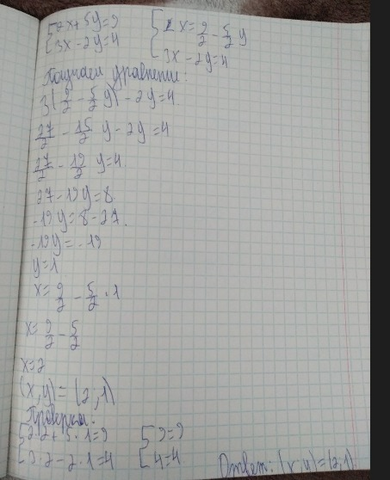 {2x+5y=9 {x=9/2-5/2y
{3x-2y=4 {3x-2y=4
Получаем уравнение:
3(9/2-5/2y)-2y=4
27/2-15/2y-2y=4
27/2-19/2y=4
27-19y=8
-19y=8-27.
-19y=-19
y=1
x=9/2-5/2·1
x=9/2-5/2
x=2
(x,y)=(2,1)
Проверка:
{2·2+5·1=9 {9=9
{3·2-2·1=4 {4=4
Ответ: (x,y)=(2,1)